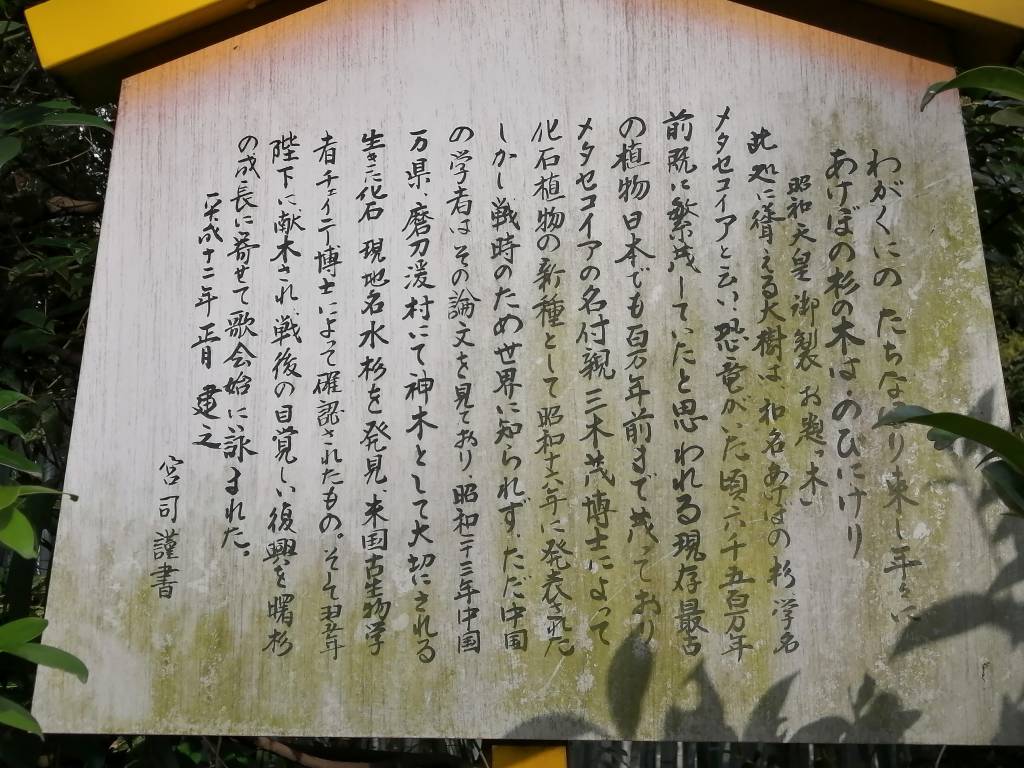 わがくにの たちなほり来し年々に
あけぼの杉の木は のびにけり
昭和天皇御製 お題「木」
此処に聳える大樹は 和名あけぼの杉、学名
メタセコイアと云い、恐竜がいた頃 六千五百万年
前既に繁茂していたと思われる現存最古
の植物 日本でも百万年前まで茂っており
メタセコイアの名付親 三木茂博士によって
化石植物の新種として昭和十六年に発表された
しかし戦時のため世界に知られず、ただ中国
の学者はその論文を見ており、昭和二十三年中国
万県、磨刀渓村にて神木として大切にされる
生きた化石 現地名水杉を発見、米国古生物学
者チェイニー博士によって確認されたもの。そして廿五年
陛下に献木され、戦後の目覚しい復興を曙杉
の成長に寄せて歌会始に詠まれた。
平成十二年正月 建之
宮司謹書